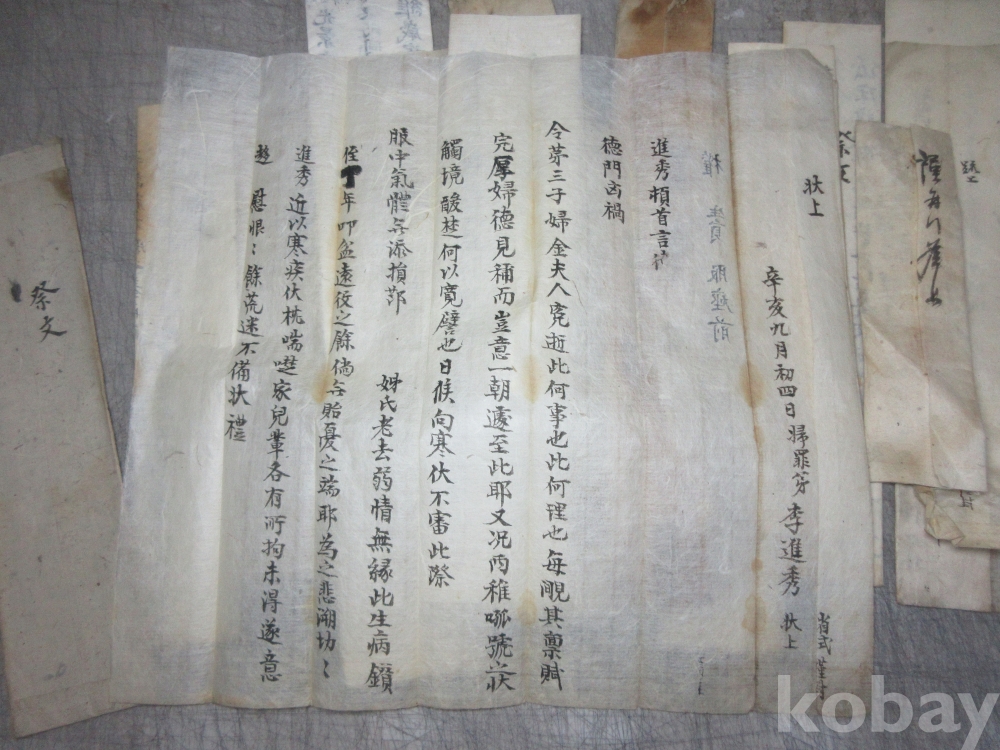 狀上
辛亥九月初四日 婦罪弟 李進秀 狀上
省式謹封
稚 賛 服座前
進秀頓首言
德門凶禍
令第三子婦金夫人奄逝此何事也此何理也每覸其稟賦
完厚婦德見稱而豈意一朝遽至此耶又况丙稚呱號之狀
觸境酸楚何以寬譬也日候向寒伏不審此際
服中氣體無添損節 婦氏老去弱情無緣此生病鎖
侄年叩盆遠役之餘倘無貽憂之端耶為之悲溯切〻
進秀近以寒疾伏枕喘㘈家兒輩各有所拘未得遂意
趨 慰恨〻餘荒迷不備狀禮
祭文
疏上
kobay